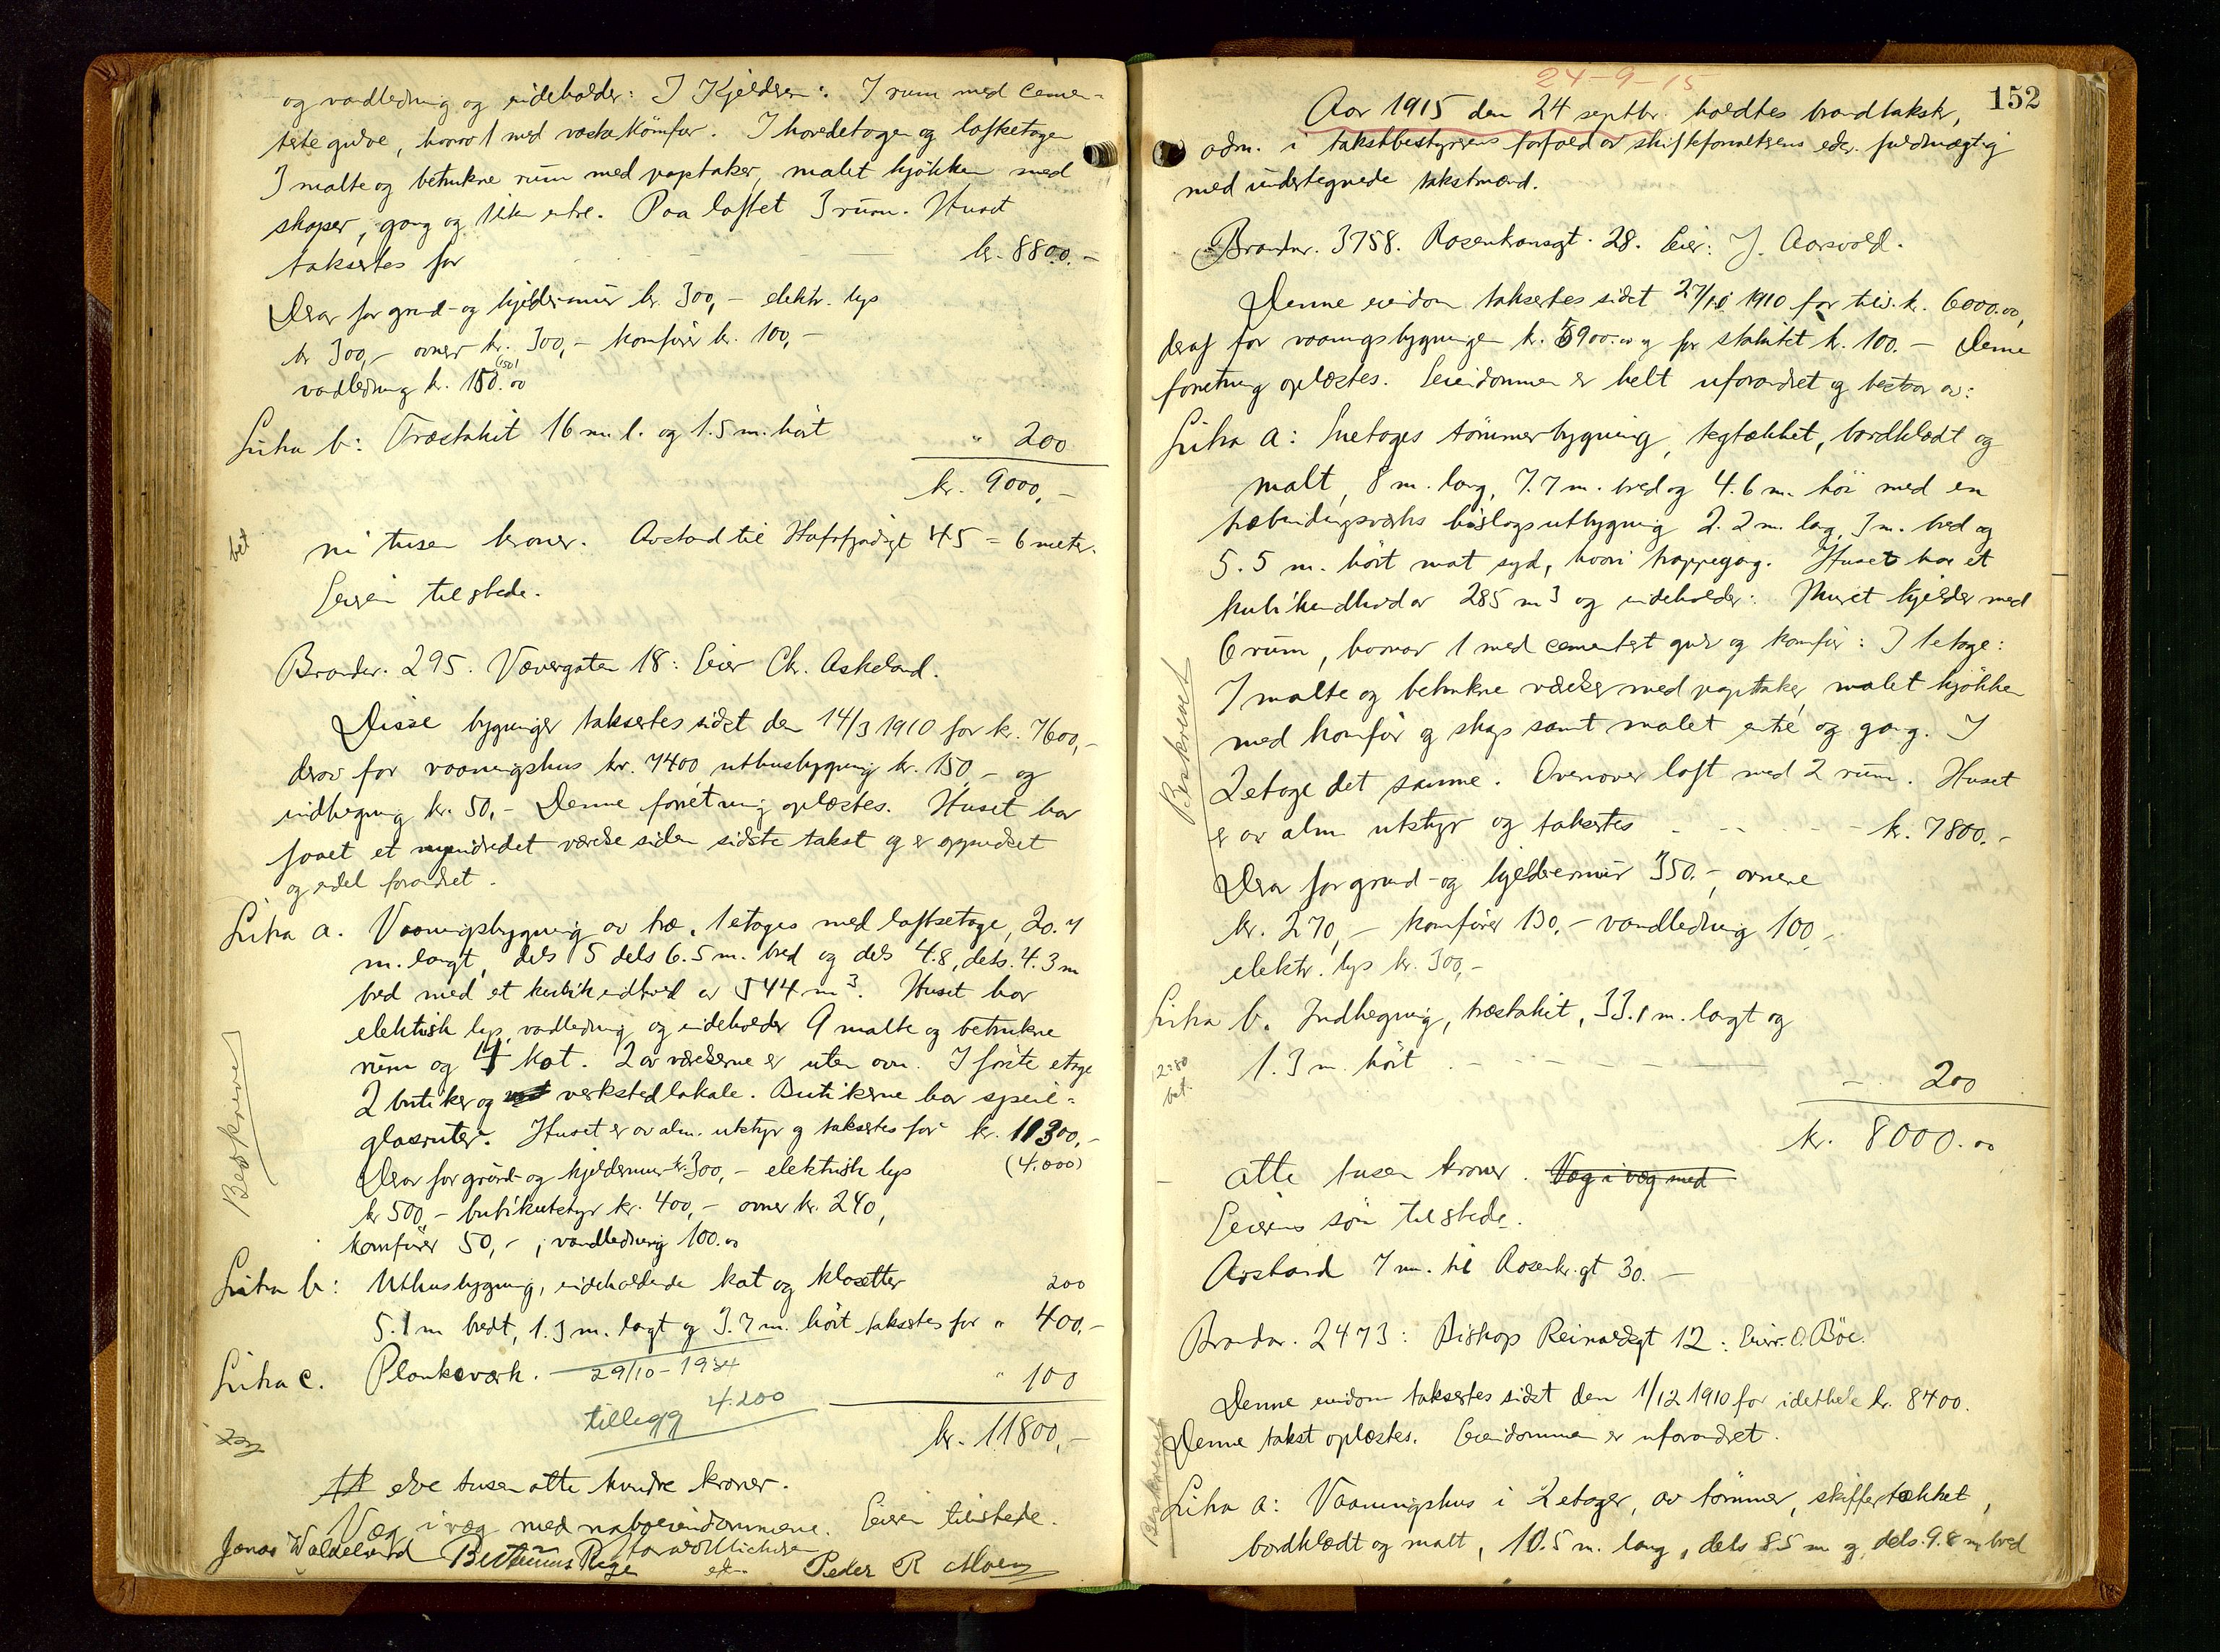 og vandledning og indeholder: I Kjelderen: 7 rum med cemen-
terte gulve, hvorav 1 med vaskekomfur. I hovedetagen og loftsetagen
3 malte og betrukne rum med paptaker, malet kjøkken med
skaper, gang og liten entre. Paa loftet 3 rum. Huset
taksertes for kr. 8800.-
Derav for grund- og kjeldermur kr. 300,- elektr. lys
kr 300,- ovner kr. 300,- komfurer kr. 100,-
(150)
vandledning kr. 150.00
Litra b: Træstakit 16 m. l. og 1.5 m. høit " 200
kr. 9000,-
bet
ni tusen kroner. Avstand til Hafrsfjordsgt 45 = 6 meter.
Eieren tilstede.
Brandnr. 295. Vævergaten 18: Eier Chr. Askeland.
Disse bygninger taksertes sidst den 14/3 1910 for kr. 7600,-
derav for vaaningshus kr. 7400 uthusbygning kr. 150,- og
indhegning kr. 50,- Denne forretning oplæstes. Huset har
faaet et nyindredet værelse siden sidste takst og er oppudset
og endel forandret.
Litra a. Vaaningsbygning av træ, 1 etages med loftsetage, 20.4
m. langt, dels 5 dels 6.5 m. bred og dels 4.8, dels 4.3 m
bred med et kubikindhold av 544 m3. Huset har
elektrisk lys, vandledning og indeholder 9 malte og betrukne
rum og 4 kot. 2 av værelserne er uten ovn. I første etage
2 butiker og verkstedlokale. Butikerne har speil-
glasruter. Huset er av alm. utstyr og taksertes for kr. 11300,-
Derav for grund- og kjeldermur kr. 300,- elektrisk lys (4.000)
kr 500,- butikutstyr kr. 400,- ovner kr. 240,
komfurer 50,-, vandledning 100.00
Beskrevet
Litra b: Uthusbygning, indeholdende kot og klosetter 200
5.1 m bredt, 1.3 m. langt og 3.7 m. høit taksertes for " 400,-
Litra c. Plankeværk. " 100
29/10-1934
tillegg 4.200
kr. 11800,-
elve tusen otte hundre kroner.
Væg i væg med naboeiendommene. Eieren tilstede.
Jonas Waldeland Peder R Moen
24-9-15
152
Aar 1915 den 24 septbr. holdtes brandtakst,
adm. i takstbestyrerens forfald av skifteforvalterens eder. fuldmægtig
med undertegnede takstmænd.
Brandnr. 3758. Rosenkransgt. 28. Eier: J. Aarsvold.
Denne eiendom taksertes sidst 27/10 1910 for tils. kr. 6000.00,
deraf for vaaningsbygningen kr. 5900.00 og for stakitet kr. 100.- Denne
forretning oplæstes. Eiendommen er helt uforandret og bestaar av:
Litra a: Enetages tømmerbygning, tegltækket, bordklædt og
malt, 8 m. lang, 7.7 m. bred og 4.6 m. høi med en
træbindingsverks bislagsutbygning 2.2 m. lang, 3 m. bred og
5.5 m. høit mot syd, hvori trappegang. Huset har et
kubikindhold av 285 m3 og indeholder: Muret kjelder med
6 rum, hvorav 1 med cementert gulv og komfur: I 1 etage:
3 malte og betrukne værelser med paptaker, malet kjøkken
med komfur og skap samt malet entré og gang. I
2 etage det samme. Ovenover loft med 2 rum. Huset
er av alm utstyr og taksertes kr. 7800.-
Derav for grund- og kjeldermur 350.-, ovnene
kr. 270,- komfurer 130,- vandledning 100,-
elektr. lys kr. 300,-
Beskrevet
Litra b. Indhegning, træstakit, 33.1 m. langt og
1.3 m. høit - 200
bet.
kr. 8000.00
otte tusen kroner. Væg i væg med
Eierens søn tilstede.
Avstand 7 m. til Rosenkr.gt 30.-
Brandnr. 2473: Bishop Reinaldsgt 12: Eier: O. Bøe.
Denne eiendom taksertes sidst den 1/12 1910 for idethele kr. 8400.
Denne takst oplæstes. Eiendommen er uforandret.
Beskrevet
Litra a: Vaaningshus i 2 etager, av tømmer, skiffertækket,
bordklædt og malt, 10.5 m. lang, dels 8.5 m og dels 9.8 m bred